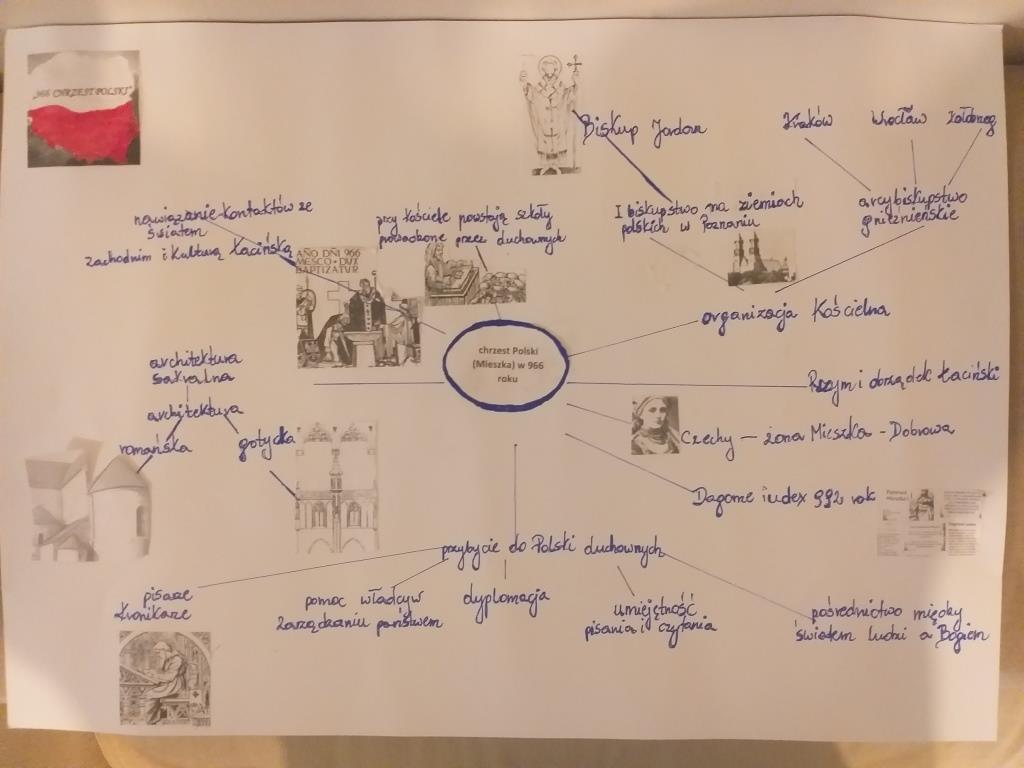 "966 CHRZEST POLSKI"
Biskup Jordan
Kraków Wrocław Kołobrzeg
nawiązanie kontaktów ze
światem
zachodnim i Kulturą Łacińską
przy kościele powstają szkoły
prowadzone przez duchownych
I biskupstwo na ziemiach
polskich w Poznaniu
arcybiskupstwo
gnieźnieńskie
ANO DÑI 966
MESCO · DUX
BAPTIZATUR
organizacja Kościelna
chrzest Polski
(Mieszka) w 966
roku
architektura
sakralna
Rzym i obrządek Łaciński
architektura
romańska
gotycka
Czechy – żona Mieszka - Dobrawa
Dagome iudex 992 rok
przybycie do Polski duchownych
pisarze
Kronikarze
pomoc władcy w
Zarządzaniu państwem
dyplomacja
umiejętność
pisania i czytania
pośrednictwo między
światem ludzi a Bogiem